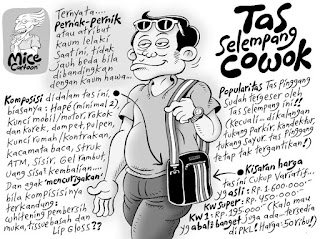 Mice
Cartoon
Ternyata....
Pernak-pernik
atau atribut
kaum lelaki
Saat ini, tidak
jauh beda bila
dibandingkan
dengan kaum hawa...
Tas
Selempang
Cowok
Komposisi di dalam tas ini,
biasanya: Hape (minimal 2)
kunci mobil/motor, rokok
dan korek, dompet, pulpen,
kunci rumah/kontrakan,
kacamata baca, struk
ATM, sisir, Gel rambut,
uang sisa kembalian....
Dan agak "mencurigakan"
bila komposisinya
terkandung:
whitening pembersih
muka, tissue basah dan
Lip Gloss??
Popularitas Tas Pinggang
Sudah tergeser oleh
Tas Selempang ini!!
(Kecuali.. dikalangan
tukang parkir, kondektur,
tukang sayur, tas Pinggang
tetap tak tergantikan!)
Kisaran harga
tas ini Cukup Variatif...
yg asli: Rp. 1.600.000-
KW Super: Rp. 450.000-
KW 1: Rp. 195.000 (Kalo mau
yg abal2 banget jga ada.. tersedia
di PKL! Harga: 50 ribu!)